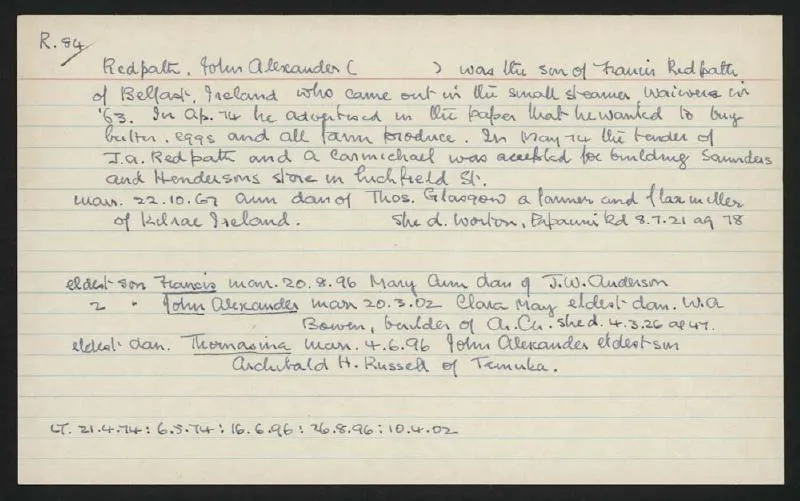 R.84
Redpath, John Alexander ( ) was the son of Francis Redpath
of Belfast, Ireland who came out in the small steamer Waiwera in
'63. In Ap. 74 he advertised in the paper that he wanted to buy
butter, eggs and all farm produce. In May 74 the tender of
J.A. Redpath and A Carmichael was accepted for building Saunders
and Hendersons store in Lichfield St.
marr. 22.10.67 Ann dau of Thos. Glasgow a farmer and flax miller
of Kilrae Ireland. She d. Worton, Papanui Rd 8.7.21 ag 78
eldest son Francis marr. 20.8.96 Mary Ann dau of J.W. Anderson
2 " John Alexander marr 20.3.02 Clara May eldest dau. W.A
Bowen, builder of Ch.Ch. She d. 4.3.26 ag 47.
eldest dau. Thomasina marr. 4.6.96 John Alexander eldest son
Archibald H. Russell of Temuka.
LT. 21.4.74 : 6.5.74 : 16.6.96 : 26.8.96 : 10.4.02